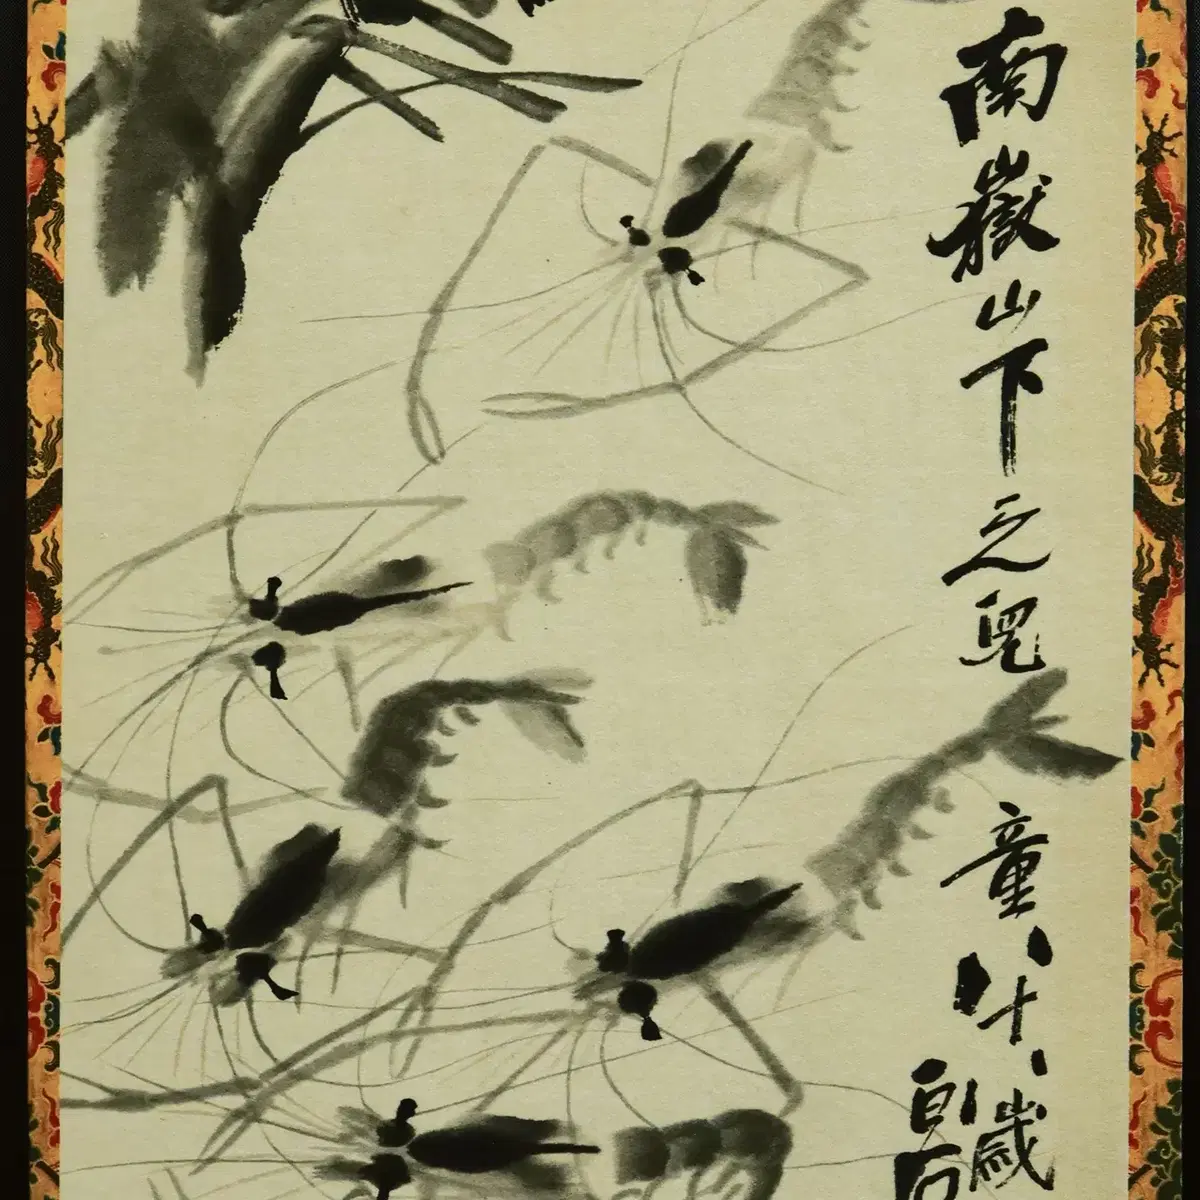 南嶽山下之兒童八十八歲
白石